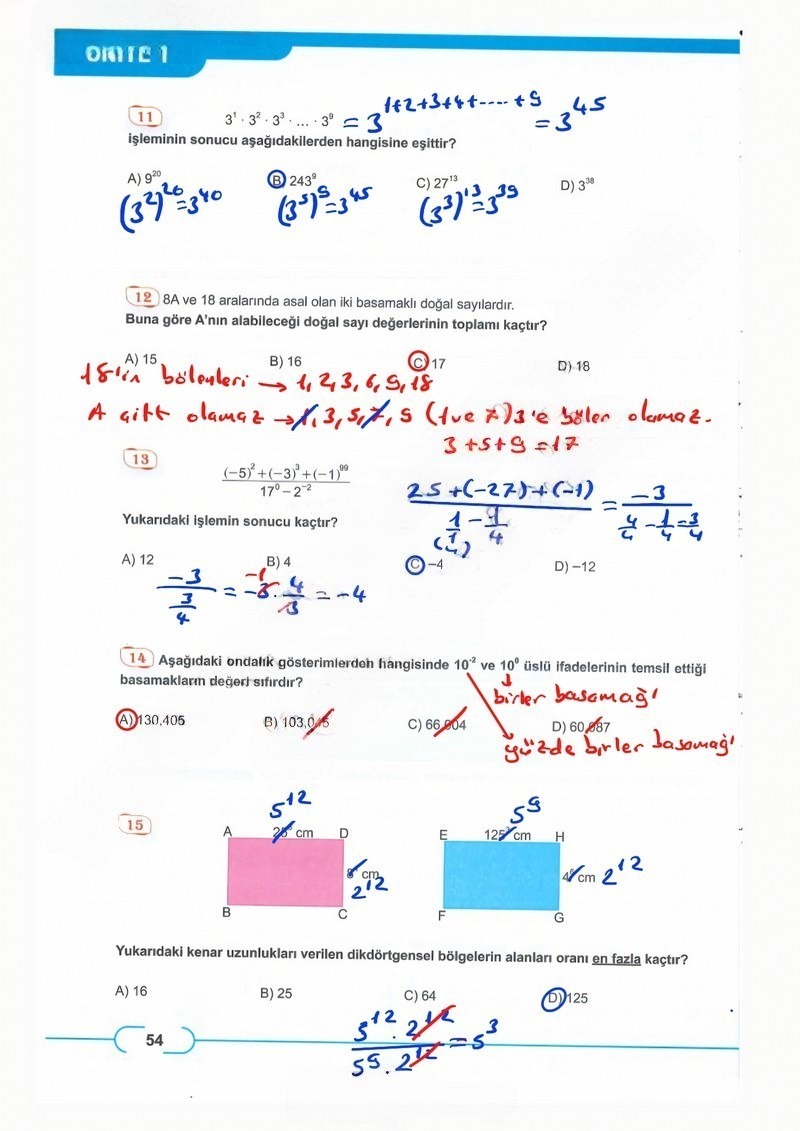 ÜNİTE 1
11 3¹ · 3² · 3³ · ... · 3⁹ = 3^1+2+3+4+----+9 = 3^45
işleminin sonucu aşağıdakilerden hangisine eşittir?
A) 9²⁰ B) 243⁹ C) 27¹³ D) 3³⁸
(3²)²⁰=3⁴⁰ (3⁵)⁹=3⁴⁵ (3³)¹³=3³⁹
12 8A ve 18 aralarında asal olan iki basamaklı doğal sayılardır.
Buna göre A'nın alabileceği doğal sayı değerlerinin toplamı kaçtır?
A) 15 B) 16 C) 17 D) 18
18'in bölenleri → 1, 2, 3, 6, 9, 18
A çift olamaz → 1, 3, 5, 7, 9 (1 ve 7) 3'e böler olamaz.
3 + 5 + 9 = 17
13 (−5)²+(−3)³+(−1)⁹⁹ / 17⁰−2⁻² 25+(-27)+(-1) / 1/1 - 1/4 (4) = -3 / 4/4 - 1/4 = 3/4
Yukarıdaki işlemin sonucu kaçtır?
A) 12 B) 4 C) −4 D) −12
-3 / 3/4 = -3 · 4/3 = -4
-1
14 Aşağıdaki ondalık gösterimlerden hangisinde 10⁻² ve 10⁰ üslü ifadelerinin temsil ettiği
basamakların değeri sıfırdır?
birler basamağı
A) 130,405 B) 103,045 C) 66,004 D) 60,087
yüzde birler basamağı
15
5¹² 5⁹
A cm D E 125 cm H
cm 2¹² cm 2¹²
B C F G
Yukarıdaki kenar uzunlukları verilen dikdörtgensel bölgelerin alanları oranı en fazla kaçtır?
A) 16 B) 25 C) 64 D) 125
5¹² · 2¹² / 5⁹ · 2¹² = 5³
54